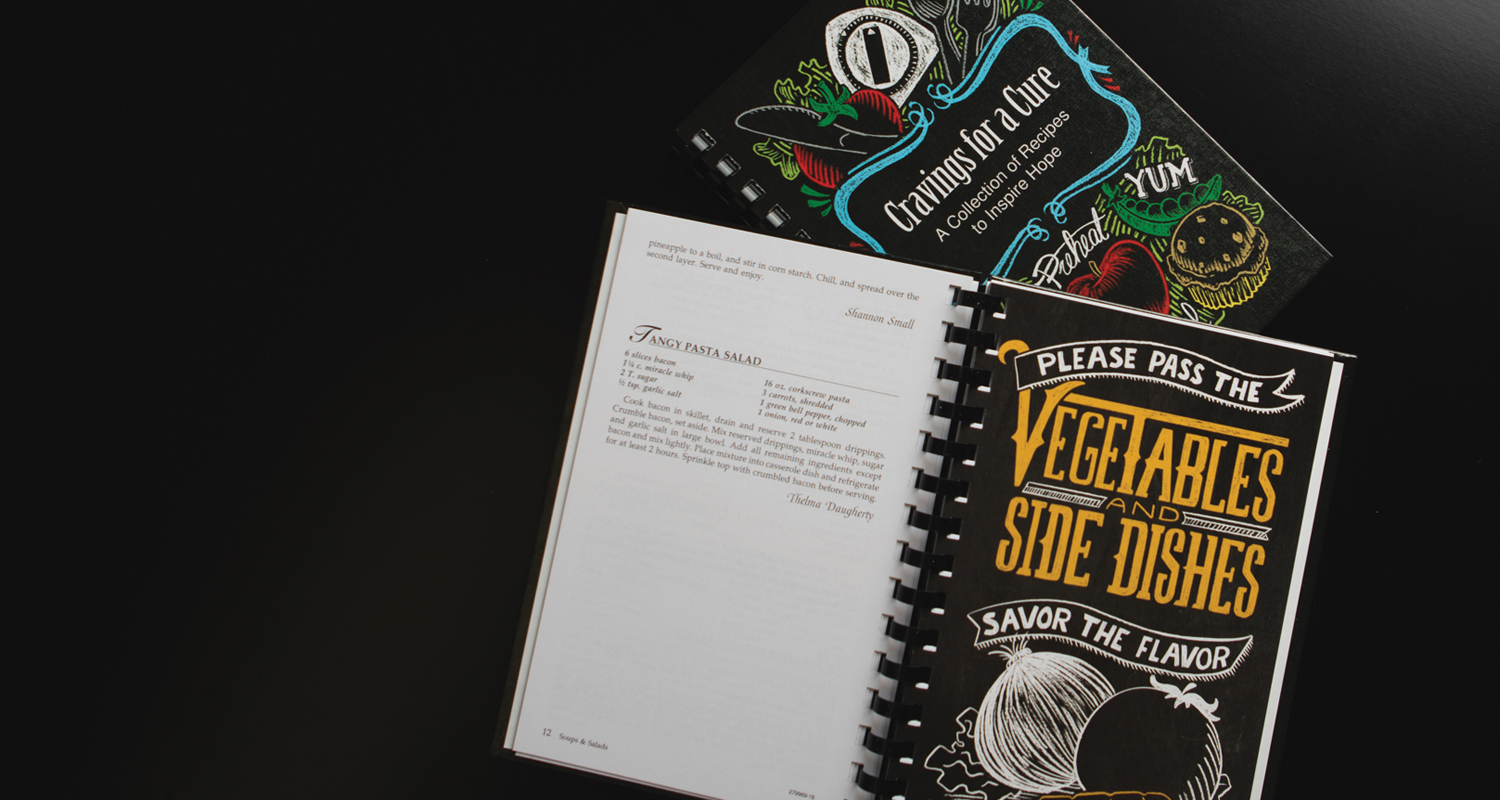 Cravings for a Cure
A Collection of Recipes
to Inspire Hope
YUM
Preheat
pineapple to a boil, and stir in corn starch. Chill, and spread over the
second layer. Serve and enjoy.
Shannon Small
TANGY PASTA SALAD
6 slices bacon
1¼ c. miracle whip
2 T. sugar
½ tsp. garlic salt
16 oz. corkscrew pasta
3 carrots, shredded
1 green bell pepper, chopped
1 onion, red or white
Cook bacon in skillet, drain and reserve 2 tablespoon drippings.
Crumble bacon, set aside. Mix reserved drippings, miracle whip, sugar
and garlic salt in large bowl. Add all remaining ingredients except
bacon and mix lightly. Place mixture into casserole dish and refrigerate
for at least 2 hours. Sprinkle top with crumbled bacon before serving.
Thelma Daugherty
12 Soups & Salads
279969-16
PLEASE PASS THE
VEGETABLES
AND
SIDE DISHES
SAVOR THE FLAVOR